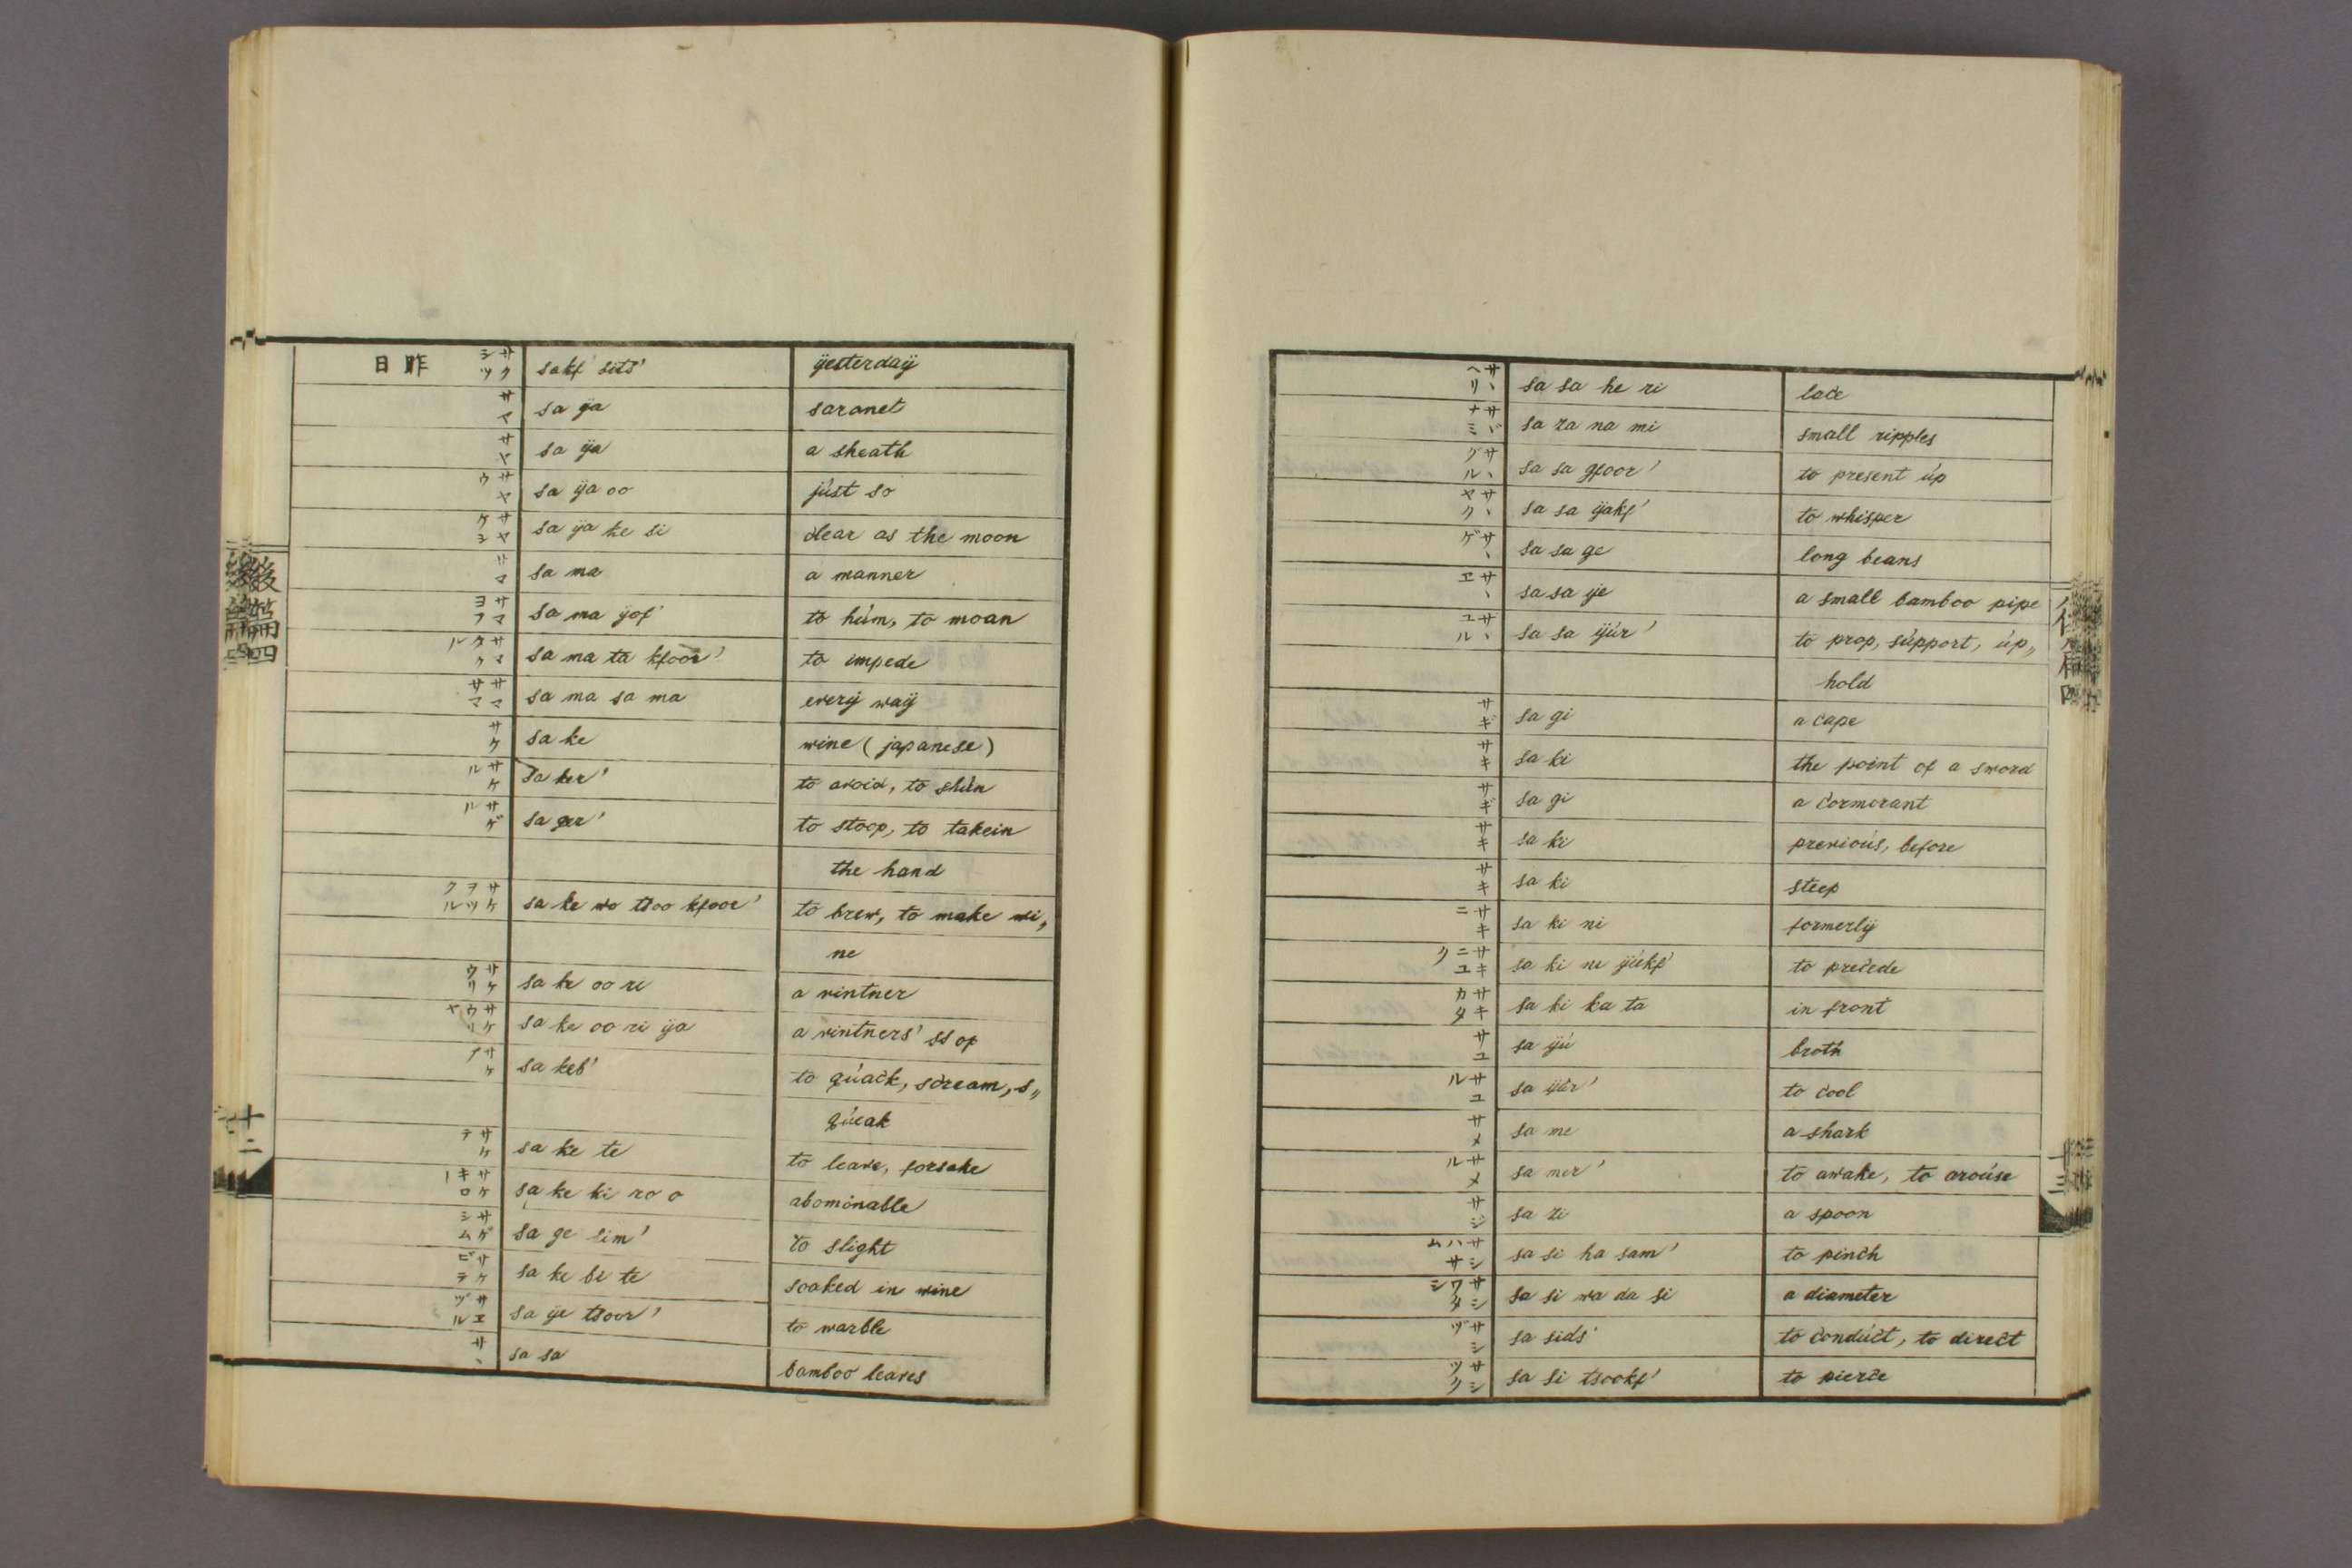 昨日 サクシツ sakf' sits' ÿesterdaÿ
サヤ sa ÿa saranet
サヤ sa ÿa a sheath
サヤウ sa ÿa oo júst so
サヤケシ sa ÿa ke si clear as the moon
サマ sa ma a manner
サマヨフ sa ma ÿof' to húm, to moan
サマタクル sa ma ta kfoor' to impede
サマサマ sa ma sa ma everÿ waÿ
サケ sa ke wine (japanese)
サケル sa ker' to avoid, to shún
サゲル sa ger' to stoop, to takein
the hand
サケヲツクル sa ke wo tsoo kfoor' to brew, to make wi„
ne
サケウリ sa ke oo ri a vintner
サケウリヤ sa ke oo ri ÿa a vintners' ssop
サケブ sa keb' to qúack, scream, s„
qúeak
サケテ sa ke te to leave, forsake
サケキロー sa ke ki ro o abominable
サゲシム sa ge sim' to slight
サケビテ sa ke bi te soaked in wine
サエヅル sa ÿe tsoor' to warble
サヽ sa sa bamboo leaves
後篇四
十二
サヽヘリ sa sa he ri lace
サヾナミ sa za na mi small ripples
サヽグル sa sa gfoor' to present úp
サヽヤク sa sa ÿakf' to whisper
サヽゲ sa sa ge long beans
サヽエ sa sa ÿe a small bamboo pipe
サヽユル sa sa ÿúr' to prop, súpport, úp„
hold
サギ sa gi a cape
サキ sa ki the point of a sword
サギ sa gi a cormorant
サキ sa ki previoús, before
サキ sa ki steep
サキニ sa ki ni formerlÿ
サキニユク sa ki ni ÿúkf' to precede
サキカタ sa ki ka ta in front
サユ sa ÿú broth
サユル sa ÿúr' to cool
サメ sa me a shark
サメル sa mer' to awake, to aroúse
サジ sa zi a spoon
サシハサム sa si ha sam' to pinch
サシワタシ sa si wa da si a diameter
サシヅ sa sids' to condúct, to direct
サシツク sa si tsookf' to pierce
十三